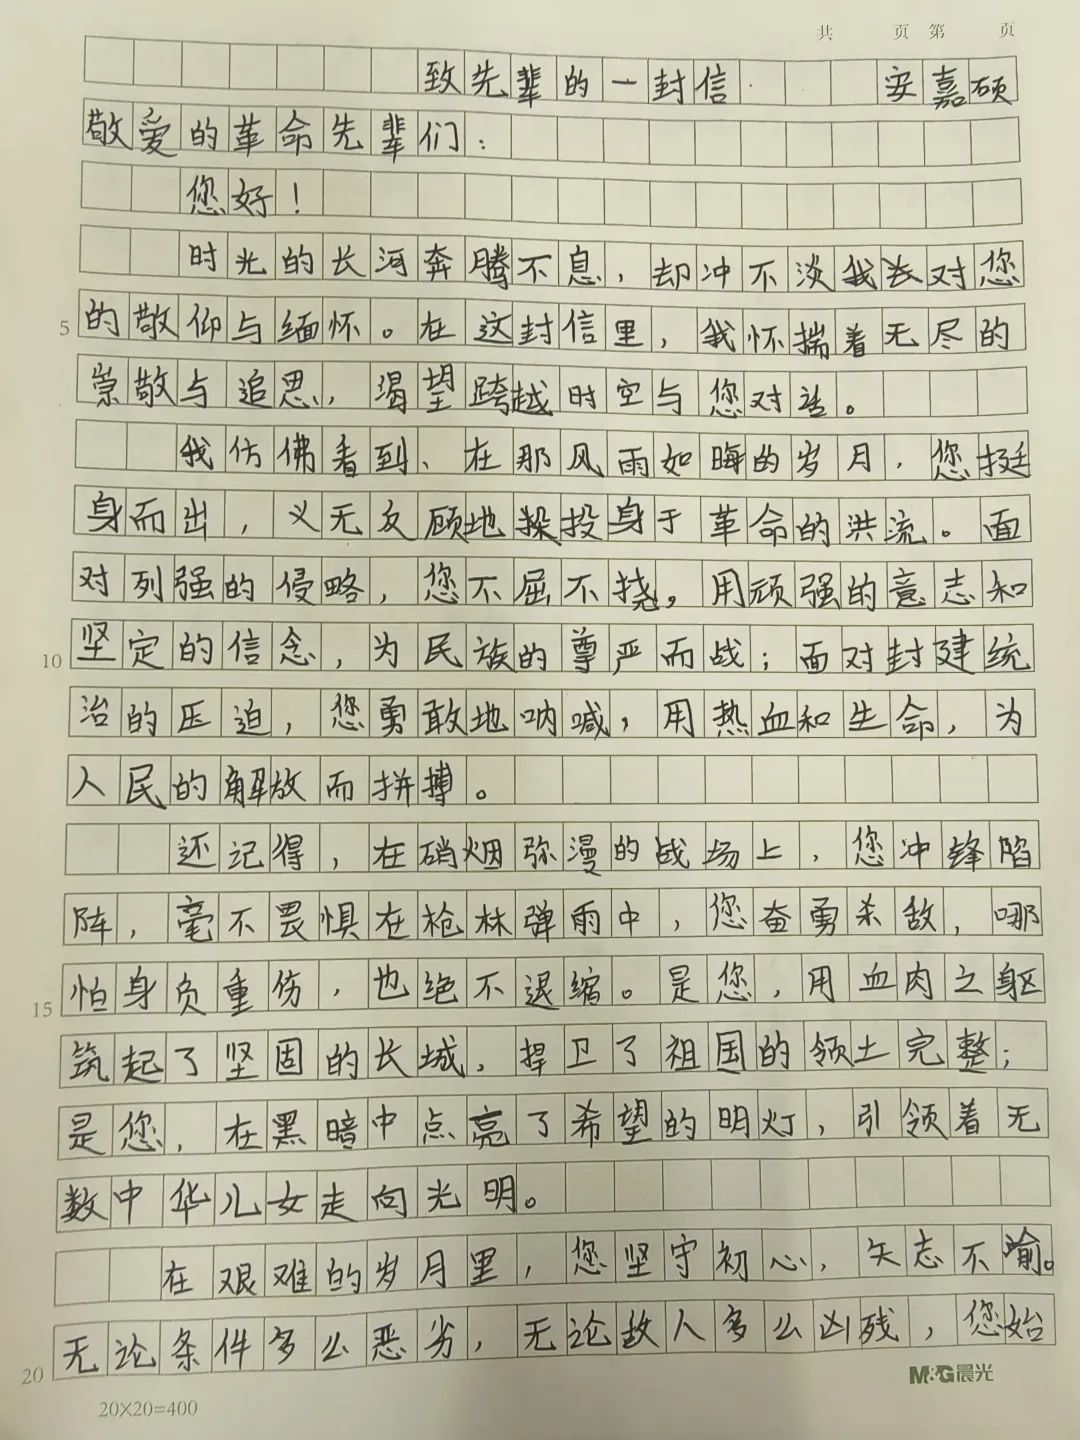 共 页 第 页
致先辈的一封信 安嘉硕
敬爱的革命先辈们：
您好！
时光的长河奔腾不息，却冲不淡我对您
5 的敬仰与缅怀。在这封信里，我怀揣着无尽的
崇敬与追思，渴望跨越时空与您对话。
我仿佛看到、在那风雨如晦的岁月，您挺
身而出，义无反顾地投身于革命的洪流。面
对列强的侵略，您不屈不挠，用顽强的意志和
10 坚定的信念，为民族的尊严而战；面对封建统
治的压迫，您勇敢地呐喊，用热血和生命，为
人民的解放而拼搏。
还记得，在硝烟弥漫的战场上，您冲锋陷
阵，毫不畏惧在枪林弹雨中，您奋勇杀敌，哪
15 怕身负重伤，也绝不退缩。是您，用血肉之躯
筑起了坚固的长城，捍卫了祖国的领土完整；
是您，在黑暗中点亮了希望的明灯，引领着无
数中华儿女走向光明。
在艰难的岁月里，您坚守初心，矢志不喻。
20 无论条件多么恶劣，无论敌人多么凶残，您始
M&G晨光
20×20=400